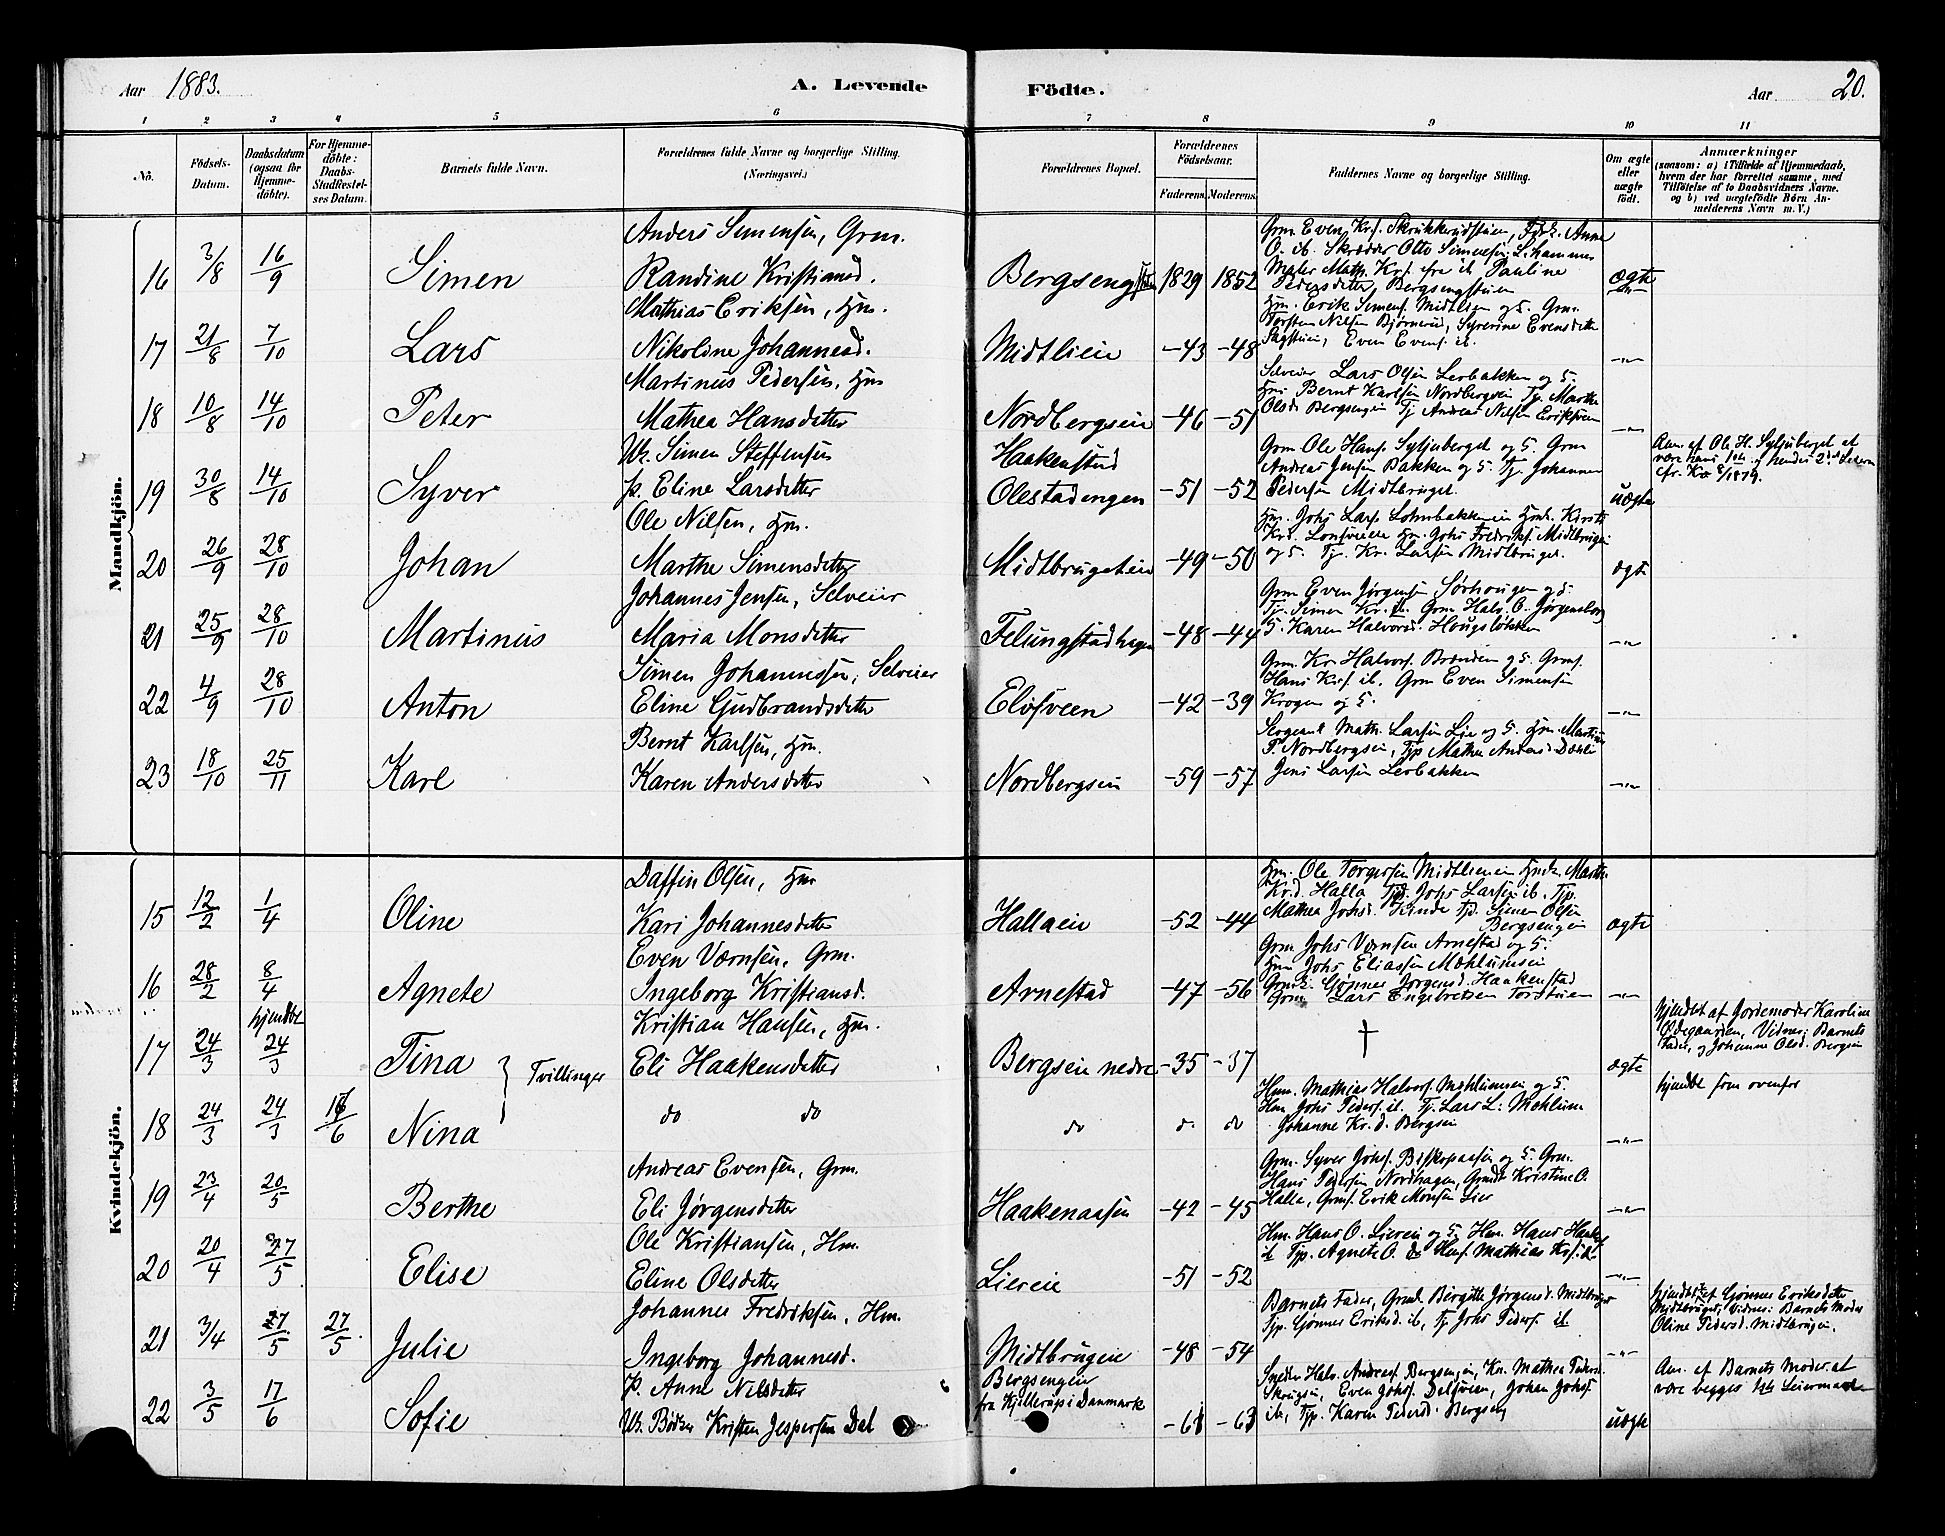 Aar 1883. A. Levende Födte. Aar 20.
1 2 3 4 5 6 7 8 9 10 11
No.
Födsels-Datum.
Daabsdatum (ogsaa for Hjemme-döbte).
For Hjemme-döbte: Daabs-Stadfæstel-ses Datum.
Barnets fulde Navn.
Forældrenes fulde Navne og borgerlige Stilling. (Næringsvei.)
Forældrenes Bopæl.
Forældrenes Födselsaar.
Faderens. Moderens.
Faddernes Navne og borgerlige Stilling.
Om ægte eller uægte födt.
Anmærkninger
(saasom: a) i Tilfælde af Hjemmedaab,
hvem der har forrettet samme, med
Tilföielse af to Daabsvidners Navne.
og b) ved uægtefödte Börn An-
melderens Navn m. V.)
Mandkjön.
16 3/8 16/9 Simen
Anders Simensen, Grm.
Randine Kristiansd.
Bergsengstuen 1829 1852
Grm Even Kr. Skrukkerudstuen, Anne
O. ib. Skrædder Otto Simensen L.hammer
Maler Math. Kr. fra ib Pauline
Pedersdetter Bergsengstuen
ægte
17 21/8 7/10 Lars
Mathias Eriksen, Hm.
Nikoline Johannesd.
Midtlien -43 -48
Hm. Erik Simens. Midtlien og S. Grm.
Torsten Nilsen Bjørnerud, Syverine Evensdetter
Even Evens. ib.
-"-
18 10/8 14/10 Peter
Martinus Pedersen, Hm
Mathea Hansdetter
Nordbergseie -46 -51
Selveier Lars Olsen Lerbakken og S.
Hm Bernt Karlsen Nordbergeie Tp. Marthe
Olsd. Bergsengen Tj Andreas Nilsen
-"-
19 30/8 14/10 Syver
Uk. Simen Steffensen
P. Eline Larsdetter
Haakenstad
Olestadengen -51 -52
Grm Ole Hans. Syljuberget og S. Grm
Andreas Jensen Bakken og S. Tj. Johannes
Pedersen Midtbruget.
uægte
Anm. af Ole H. Syljuberget at
være hans 1ste og hendes 2det Leierm
cfr. Kr 8/1879.
20 26/9 28/10 Johan
Ole Nilsen, Hm.
Marthe Simensdetter
Midtbrugeteie -49 -50
Hm. Johs Lars. Hmk. Kirsti
Kr.d. Hm. Johs Fredriks. Midtbrugeie
og S. Tj. Kr. Larsen Midtbruget.
ægte
21 25/9 28/10 Martinus
Johannes Jensen, Selveier
Maria Monsdetter
Flungstadhagen -48 -44
Grm Even Jørgensen Sørhougen og S.
Tj. Simen Kr. ib. Grm Halv. O. Jørgensborg
S. Karen Halvorsd. Hougsløkken
-"-
22 4/9 28/10 Anton
Simen Johannessen, Selveier
Eline Gudbrandsdetter
Elofsveen -42 -39
Grm. Kr. Halvors. Brænden og S. Grms.
Hans Krs. ib. Grm Even Simensen
Krogen og S.
-"-
23 18/10 25/11 Karl
Bernt Karlsen, Hm.
Karen Andersdetter
Nordbergseie -59 -57
Sergeant Math. Larsen Lie og S. Hm. Martinus
P. Nordbergseie, Tjp Mathea Andersd. Dæhli
Jens Larsen Lerbakken
-"-
Kvindekjön.
15 12/2 1/4 Oline
Daffin Olsen, Hm
Kari Johannesdetter
Hallaeie -52 -44
Hm. Ole Torgersen Midtlieneie Hmk. Marthe
Kr.d. Halla Tj. Johs Larsen ib. Tjp.
Mathea Johsd. Kinde Tj. Simen Olsen
Bergsengeie
ægte
16 28/2 8/4 Agnete
Even Værnsen, Grm.
Ingeborg Kristiansd.
Arnestad -47 -56
Grm Johs Værnsen Arnestad og S.
Hm Johs Eliassen Mæhlumseie
Grmk. Gønner Jørgensd. Haakenstad
Grm Lars Engebretsen Torstuen
-"-
17 24/3 hjemdbt 24/3 Tina } Tvillinger
Kristian Hansen, Hm.
Eli Haakensdetter
Bergseie nedre -35 -37
†
ægte
hjemdbt af Jordemoder Karoline
Ødegaarden, Vidner: Barnets
Fader, og Johanne Olsd. Bergseie
18 24/3 24/3 16/6 Nina
do do
do do do
Hmm. Mathias Halvors. Mæhlumseie og S.
Hm Johs Peders. ib. Tj. Lars L: Mæhlum
Johanne Kr.d. Bergseie
-"-
hjemdbt som ovenfor
19 23/4 20/5 Berthe
Andreas Evensen, Grm.
Eli Jørgensdetter
Haakenaasen -42 -45
Grm. Syver Johs. Biskopaasen og S. Grm.
Hans Pedersen Nordhagen, Grmdt Kristine O.
Halla, Grms. Erik Monsen Lier
-"-
20 20/4 27/5 Elise
Ole Kristiansen, Hm.
Eline Olsdetter
Liereie -51 -52
Hm. Hans O. Liereie og S. Hm. Hans Hans.
ib Tjp. Agnete O. do Hms. Mathias Krs. ib
-"-
21 3/4 27/5 27/5. Julie
Johannes Fredriksen, Hm.
Ingeborg Johannesd.
Midtbrugeie -48 -54
Barnets Fader, Grmk. Bergitte Jørgensd. Midtbruget
Tjp. Gønner Eriksd. ib, Tj. Johs Peders. ib
-"-
hjemdbt af Gønner Eriksdetter
Midtbruget, Vidner: Barnets Moder
Oline Pedersd. Midtbrugeie.
22 3/5 17/6 Sofie
P. Anne Nilsdetter
Uk. Bødker Kristen Jespersen Dal
Bergsengeie
fra Kjellerup i Danmark -61 -63
Snedker Halv. Andreas. Bergsengeie, Kr. Mathea Pedersd.
Skrugseie, Even Johs. Dalsveen, Johan Johs.
ib, Tjp. Karen Pedersd. Bergseng
uægte
Anm. af Barnets Moder at
være begges 1ste Leiermaal